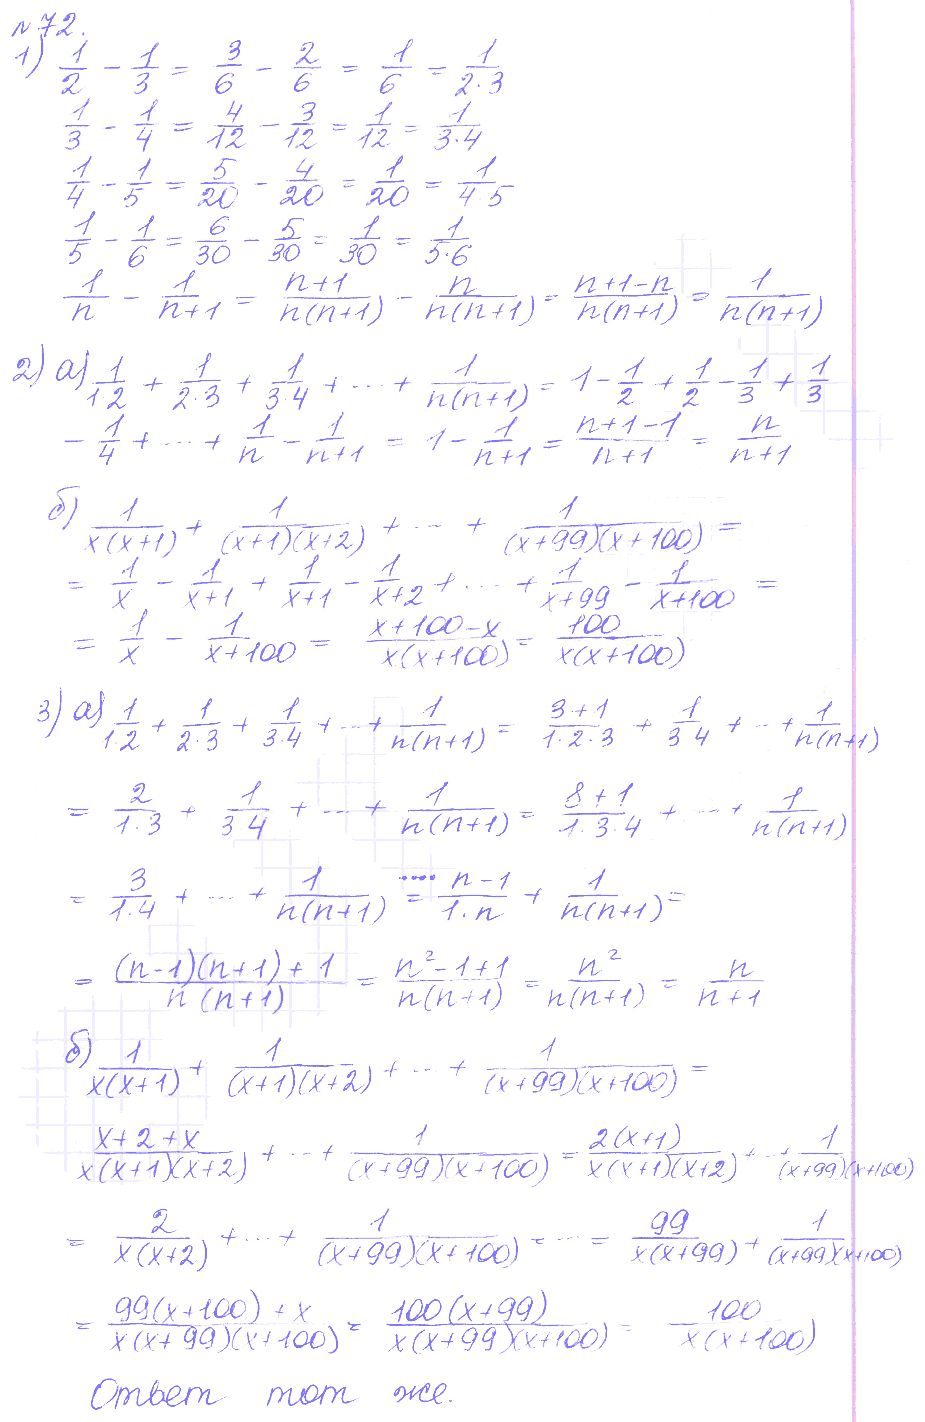 №72.
1) 1/2 − 1/3 = 3/6 − 2/6 = 1/6 = 1/(2·3)
1/3 − 1/4 = 4/12 − 3/12 = 1/12 = 1/(3·4)
1/4 − 1/5 = 5/20 − 4/20 = 1/20 = 1/(4 5)
1/5 − 1/6 = 6/30 − 5/30 = 1/30 = 1/(5·6)
1/n − 1/(n+1) = (n+1)/(n(n+1)) − n/(n(n+1)) = (n+1−n)/(n(n+1)) = 1/(n(n+1))
2) а) 1/(1 2) + 1/(2·3) + 1/(3·4) + ... + 1/(n(n+1)) = 1 − 1/2 + 1/2 − 1/3 + 1/3
− 1/4 + ... + 1/n − 1/(n+1) = 1 − 1/(n+1) = (n+1−1)/(n+1) = n/(n+1)
б) 1/(x(x+1)) + 1/((x+1)(x+2)) + ... + 1/((x+99)(x+100)) =
= 1/x − 1/(x+1) + 1/(x+1) − 1/(x+2) + ... + 1/(x+99) − 1/(x+100) =
= 1/x − 1/(x+100) = (x+100−x)/(x(x+100)) = 100/(x(x+100))
3) а) 1/(1·2) + 1/(2·3) + 1/(3·4) + ... + 1/(n(n+1)) = (3+1)/(1·2·3) + 1/(3 4) + ... + 1/(n(n+1))
= 2/(1·3) + 1/(3 4) + ... + 1/(n(n+1)) = (8+1)/(1·3·4) + ... + 1/(n(n+1))
= 3/(1·4) + ... + 1/(n(n+1)) = .... (n−1)/(1·n) + 1/(n(n+1)) =
= ((n−1)(n+1)+1)/(n(n+1)) = (n²−1+1)/(n(n+1)) = n²/(n(n+1)) = n/(n+1)
б) 1/(x(x+1)) + 1/((x+1)(x+2)) + ... + 1/((x+99)(x+100)) =
(x+2+x)/(x(x+1)(x+2)) + ... + 1/((x+99)(x+100)) = 2(x+1)/(x(x+1)(x+2)) + ... + 1/((x+99)(x+100))
= 2/(x(x+2)) + ... + 1/((x+99)(x+100)) = ... = 99/(x(x+99)) + 1/((x+99)(x+100))
= (99(x+100)+x)/(x(x+99)(x+100)) = 100(x+99)/(x(x+99)(x+100)) = 100/(x(x+100))
Ответ тот же.